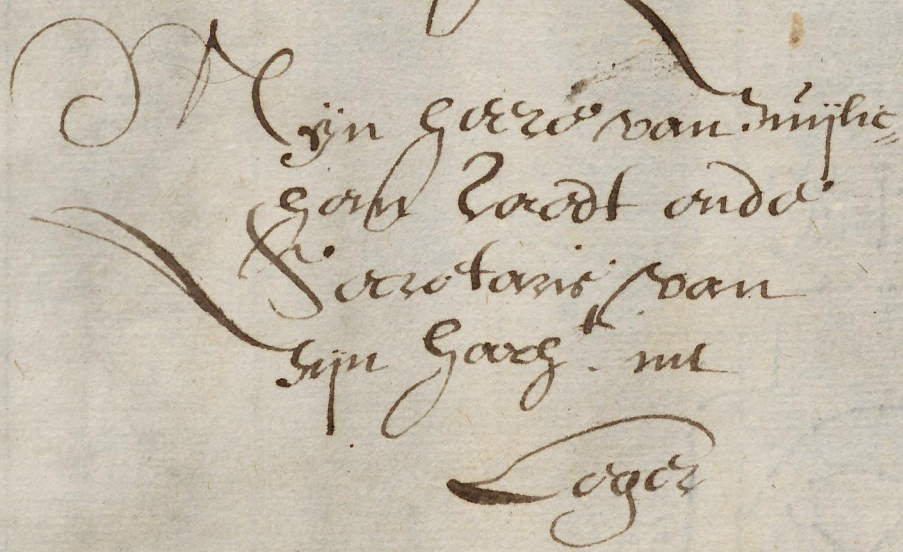 Mijn heere van Zuijlic=
hem Raedt ende
Secretaris van
Zijn hoocht. int
Leger